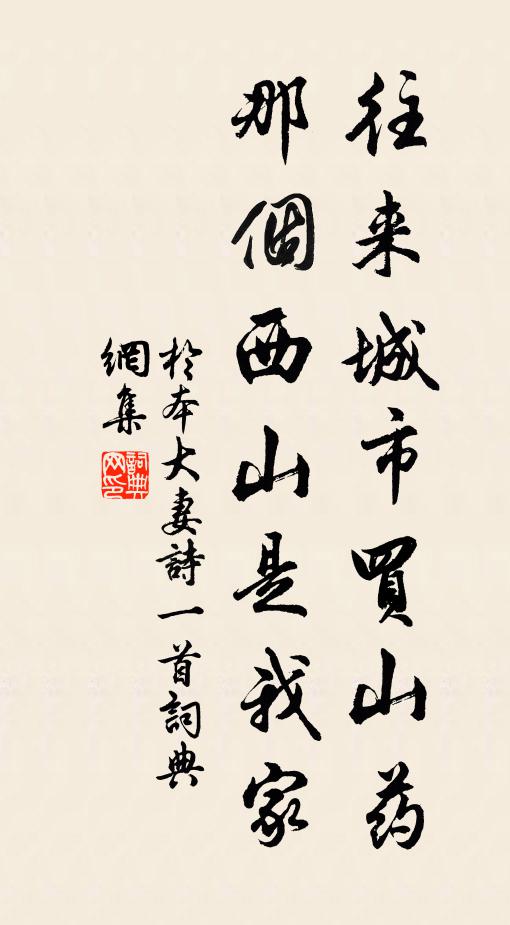 往来城市買山药
那個西山是我家
於本大妻詩一首詞典
網集
詞典网印